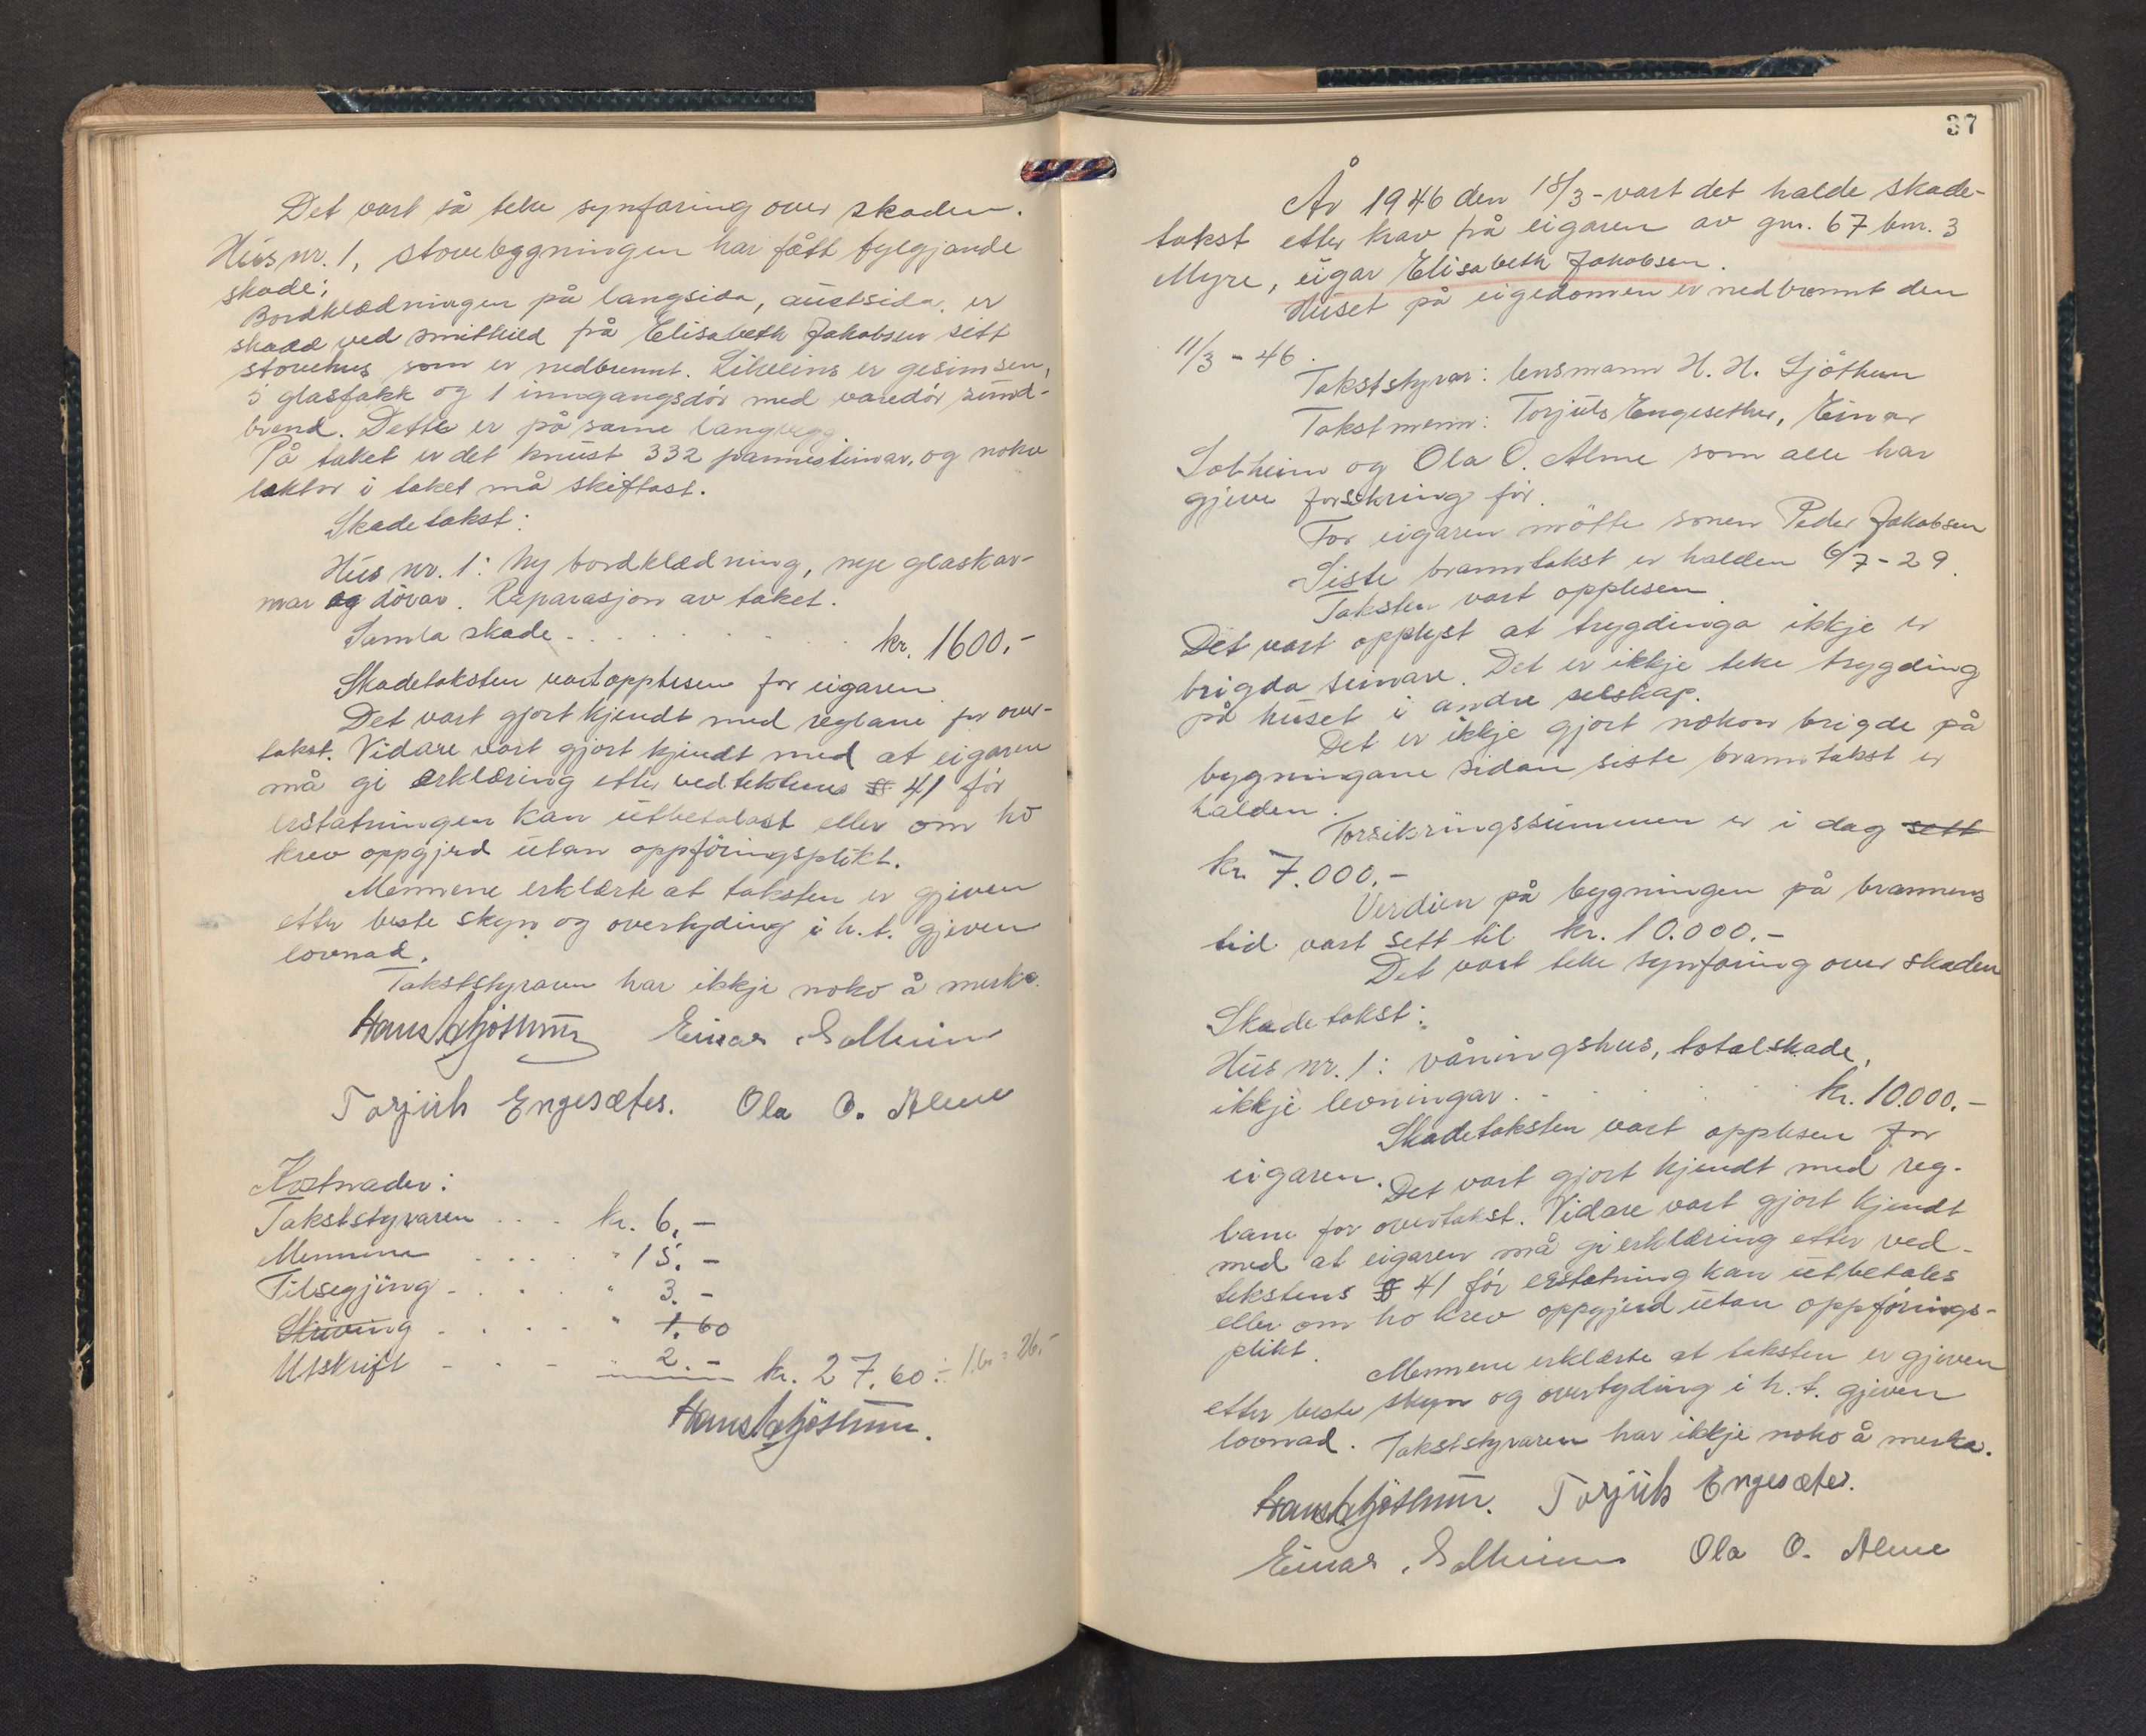 Det vart så teke synfaring over skaden.
Hus nr. 1, stovebygningen har fått fylgjande
skade:
Bordklædningen på langsida, austsida, er
skadd ved smitteild frå Elisabeth Jakobsen sitt
stovehus som er nedbrunnt. Likeeins er gesimsen,
5 glasfakk og 1 inngangsdör med varedör sund-
brend. Dette er på same langvegg.
På taket er det knust 332 pannesteinar, og noko
lektor i taket må skiftast.
Skadetakst:
Hus nr. 1: Ny bordklædning, nye glaskar-
mar og dörar. Reparasjon av taket.
Samla skade - . . . . . . kr. 1600,-
Skadetaksten vart opplesen for eigaren.
Det vart gjort kjendt med reglane for over-
takst. Vidare vart gjort kjendt med at eigaren
må gi erklæring etter vedtektens § 41 för
erstatningen kan utbetalast eller om ho
krev oppgjerd utan oppföringsplikt.
Mennene erklærte at taksten er gjeven
etter beste skyn og overtyding i h.t. gjeven
lovnad.
Takststyraren har ikkje noko å merka.
Hans H Sjöthun Einar Solheim
Torjuls Engesæter. Ola O. Alme
Kostnader:
Takststyraren . . . kr. 6,-
Mennene . . . . " 15.-
Tilsegjing - . . . " 3.-
Skriving - . . . " 1.60
Utskrift - - - " 2.- kr. 27.60 ÷ 1.60 = 26.-
Hans H Sjöthun.
37
År 1946 den 18/3 - vart det halde skade-
takst etter krav frå eigaren av gnr. 67 bnr. 3
Myre, eigar Elisabeth Jakobsen.
Huset på eigedomen er nedbrunnt den
11/3 - 46.
Takststyrar: lensmann H. H. Sjöthun
Takstmenn: Torjuls Engesether, Einar
Solheim og Ola O. Alme som alle har
gjeve forsikring för.
For eigaren mötte sonen Peder Jakobsen
Siste branntakst er halden 6/7 - 29.
Taksten vart opplesen.
Det vart opplyst at trygdinga ikkje er
brigda seinare. Det er ikkje teke trygding
på huset i andre selskap.
Det er ikkje gjort nokon brigde på
bygningane sidan siste branntakst er
halden.
Forsikringssummen er i dag sett
kr. 7.000.-
Verdien på bygningen på brannens
tid vart sett til kr. 10.000.-
Det vart teke synfaring over skaden
Skadetakst:
Hus nr. 1: våningshus, totalskade,
ikkje levningar . - . . . . kr. 10.000.-
Skadetaksten vart opplesen for
eigaren.
Det vart gjort kjendt med reg-
lane for overtakst. Vidare vart gjort kjendt
med at eigaren må gi erklæring etter ved-
tekstens § 41 för erstatning kan utbetales
eller om ho krev oppgjerd utan oppförings-
plikt.
Mennene erklærte at taksten er gjeven
etter beste skyn og overtyding i h.t. gjeven
lovnad. Takststyraren har ikkje noko å merka.
Hans H Sjöthun. Torjuls Engesæter.
Einar Solheim Ola O. Alme